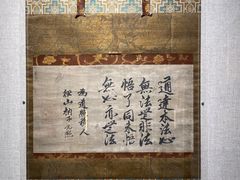 通達本法心
無法無非法
悟了同未悟
無心亦無法
徑山